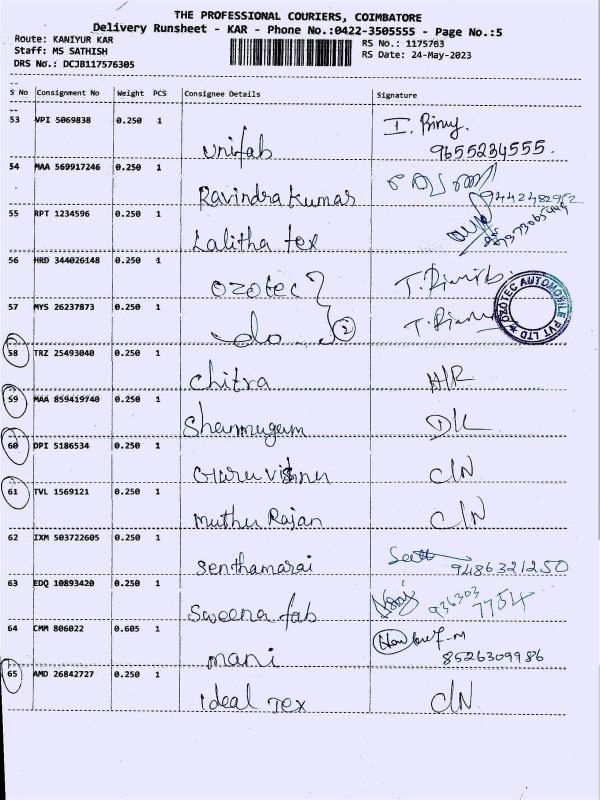 THE PROFESSIONAL COURIERS, COIMBATORE
Delivery Runsheet - KAR - Phone No.:0422-3505555 - Page No.:5
Route: KANIYUR KAR
Staff: MS SATHISH
DRS No.: DCJB117576305
RS No.: 1175763
RS Date: 24-May-2023
S No Consignment No Weight PCS Consignee Details Signature
53 VPI 5069838 0.250 1
unifab 9655234555.
54 MAA 569917246 0.250 1
Ravindra kumar
55 RPT 1234596 0.250 1
Lalitha tex
56 HRD 344026148 0.250 1
ozotec
OZOTEC AUTOMOBILE PVT LTD
57 MYS 26237873 0.250 1
do 2
58 TRZ 25493040 0.250 1
chitra H/R
59 MAA 859419740 0.250 1
Shanmugam DK
60 DPI 5186534 0.250 1
Guru vishnu C/N
61 TVL 1569121 0.250 1
muthu Rajan C/N
62 IXM 503722605 0.250 1
senthamarai 9486321250
63 EDQ 10893420 0.250 1
Sweena fab 936303 7754
64 CMM 806022 0.605 1
mani 8526309986
65 AMD 26842727 0.250 1
ideal Tex C/N